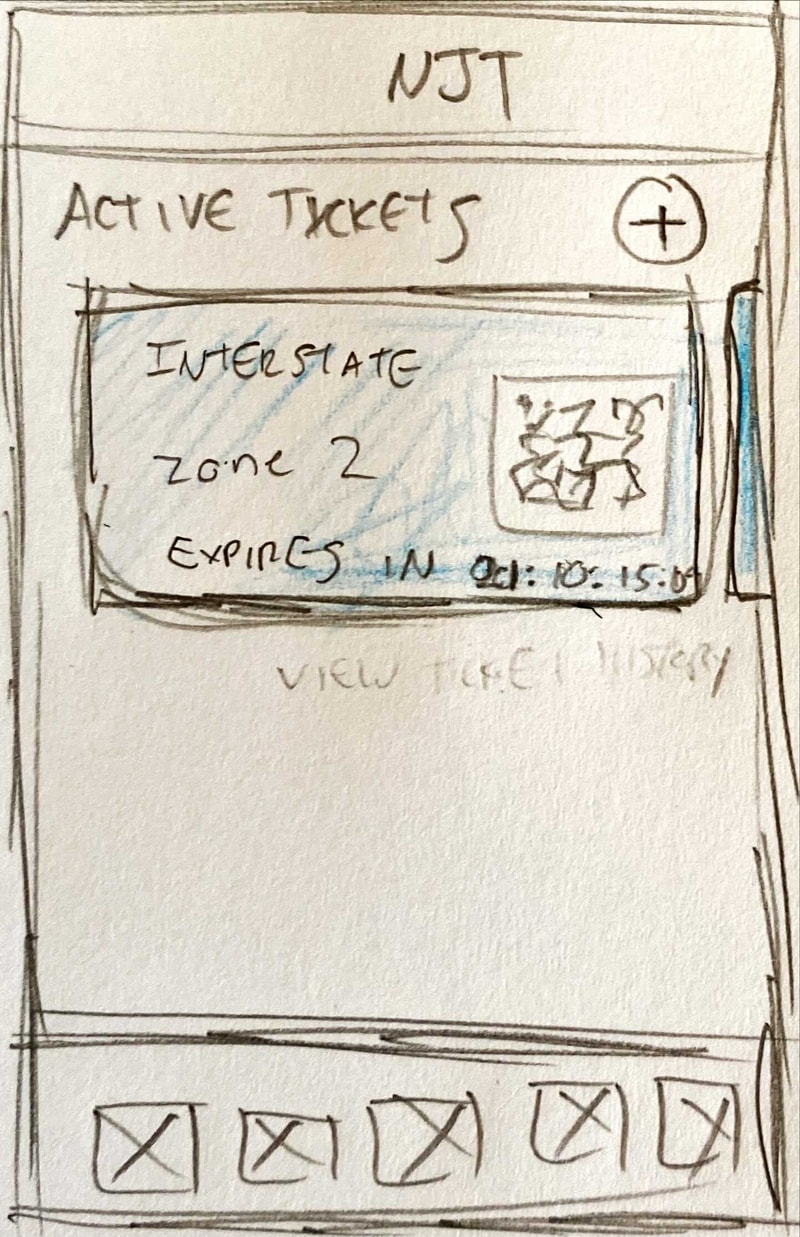 NJT
ACTIVE TICKETS +
INTERSTATE
zone 2
EXPIRES IN : 10: 15:
VIEW TICKET HISTORY